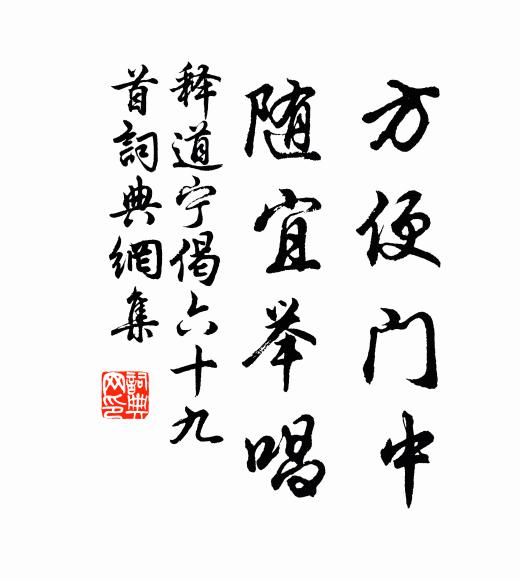 方便门中
随宜举唱
释道宁偈六十九
首詞典網集
詞典
网印